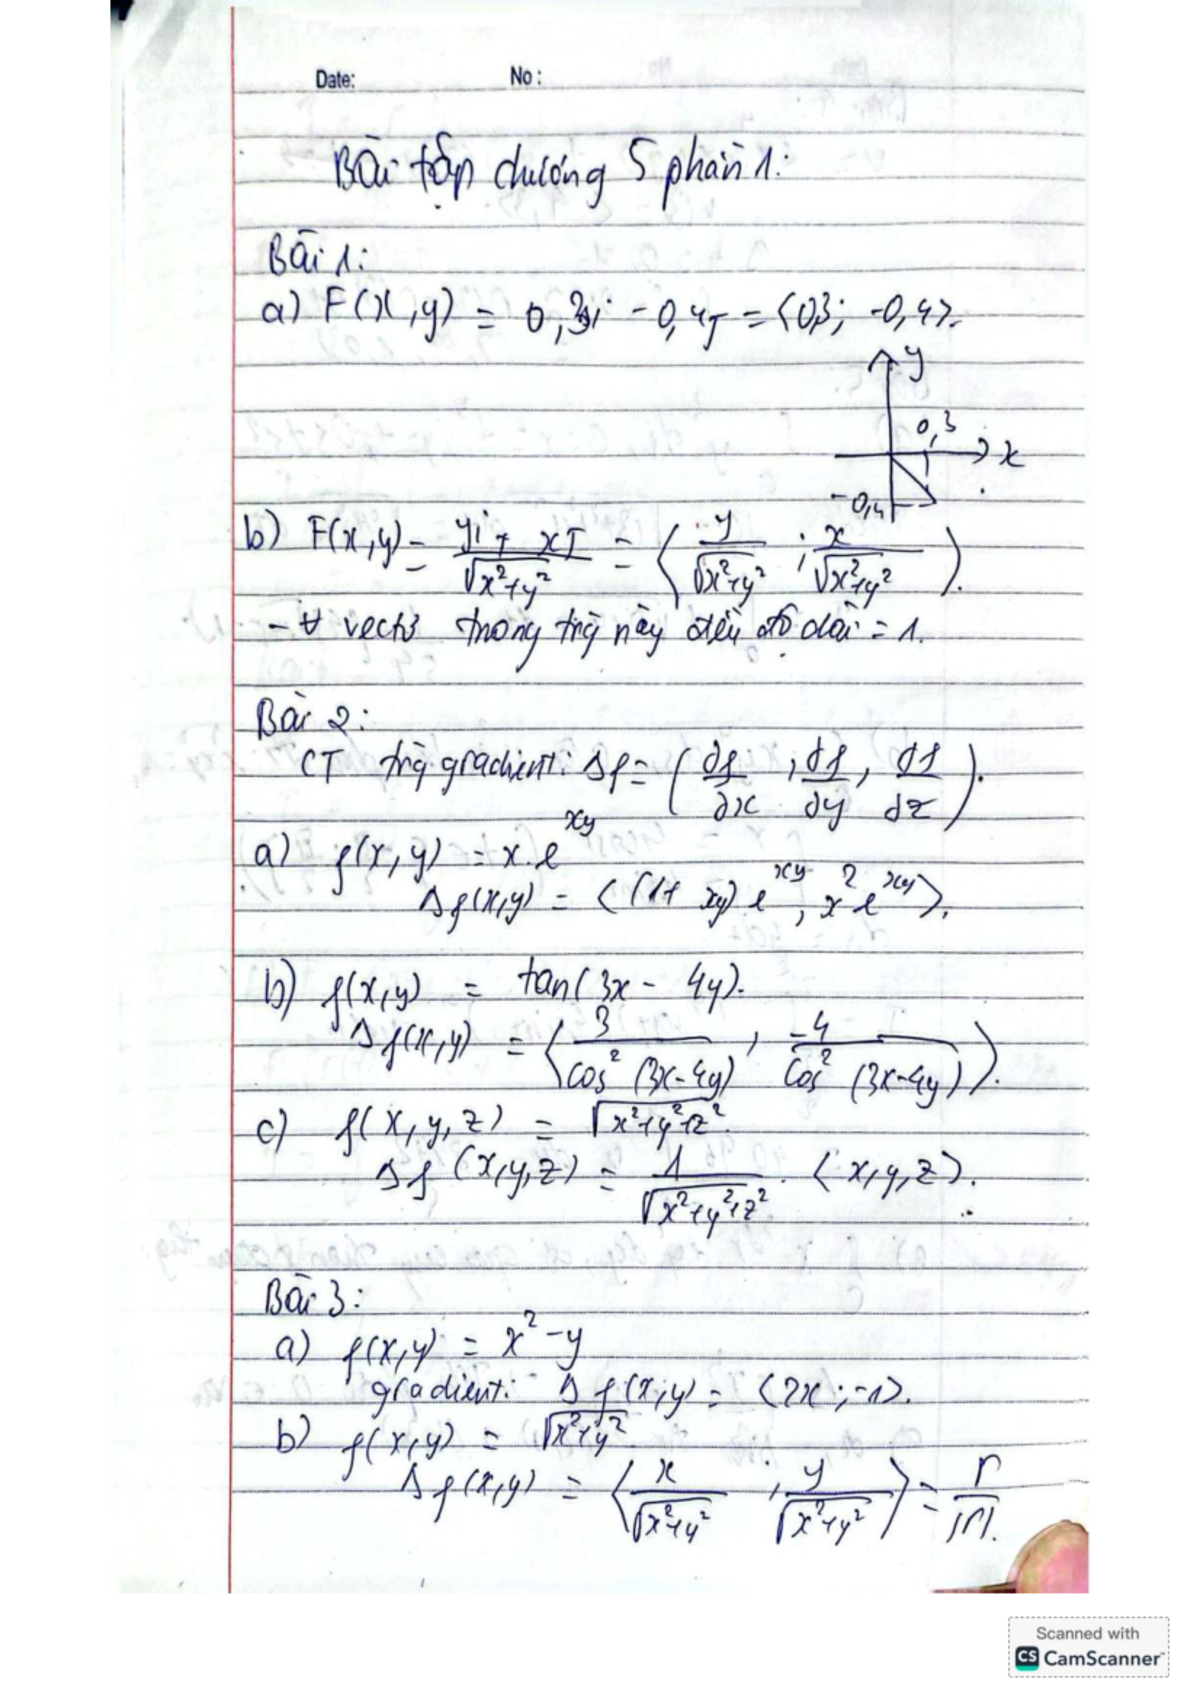 Date: No:
Bài tập chương 5 phần 1:
Bài 1:
a) F(x,y) = 0,3i - 0,4j = ⟨0,3; -0,4⟩.
y
0,3
x
-0,4
b) F(x,y) = (yi + xj)/√(x²+y²) = ⟨y/√(x²+y²) ; x/√(x²+y²)⟩.
- ∀ vectơ trong trg này đều độ dài = 1.
Bài 2:
CT trg gradient: Δf = (∂f/∂x, ∂f/∂y, ∂f/∂z).
a) f(x,y) = x.e^xy
Δf(x,y) = ⟨(1+xy)e^xy, x²e^xy⟩.
b) f(x,y) = tan(3x - 4y).
Δf(x,y) = ⟨3/cos²(3x-4y), -4/cos²(3x-4y)⟩.
c) f(x,y,z) = √(x²+y²+z²).
Δf(x,y,z) = 1/√(x²+y²+z²) . ⟨x,y,z⟩.
Bài 3:
a) f(x,y) = x² - y
gradient: Δf(x,y) = ⟨2x; -1⟩.
b) f(x,y) = √(x²+y²)
Δf(x,y) = ⟨x/√(x²+y²) ; y/√(x²+y²)⟩ = r/|r|.
Scanned with
CS CamScanner